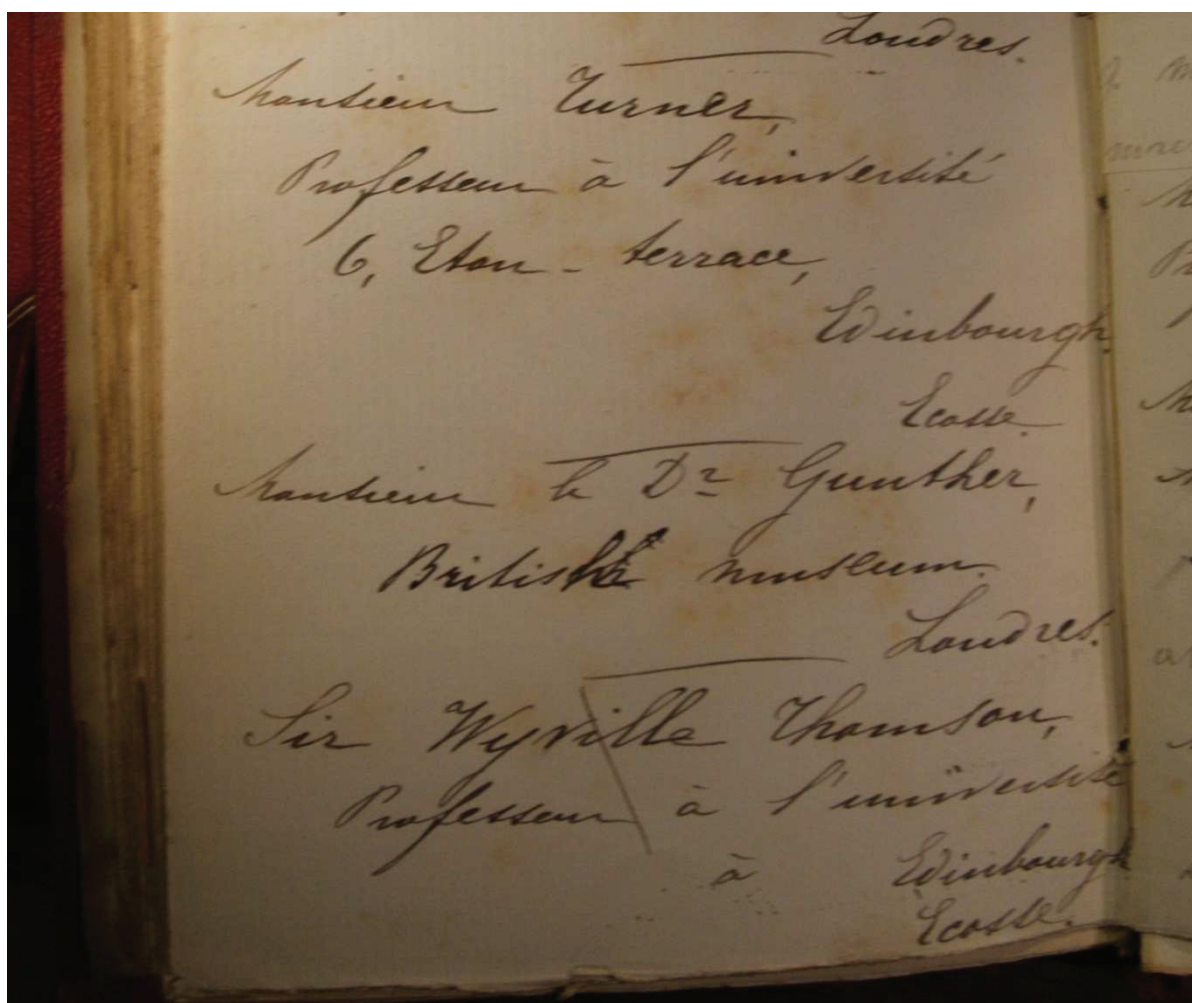 Londres.
Monsieur Turner,
Professeur à l'université
6, Eton-terrace,
Edinbourgh.
Ecosse.
Monsieur le Dr Gunther,
British museum.
Londres.
Sir Wyville Thomson,
Professeur à l'université
à Edinbourgh
Ecosse.